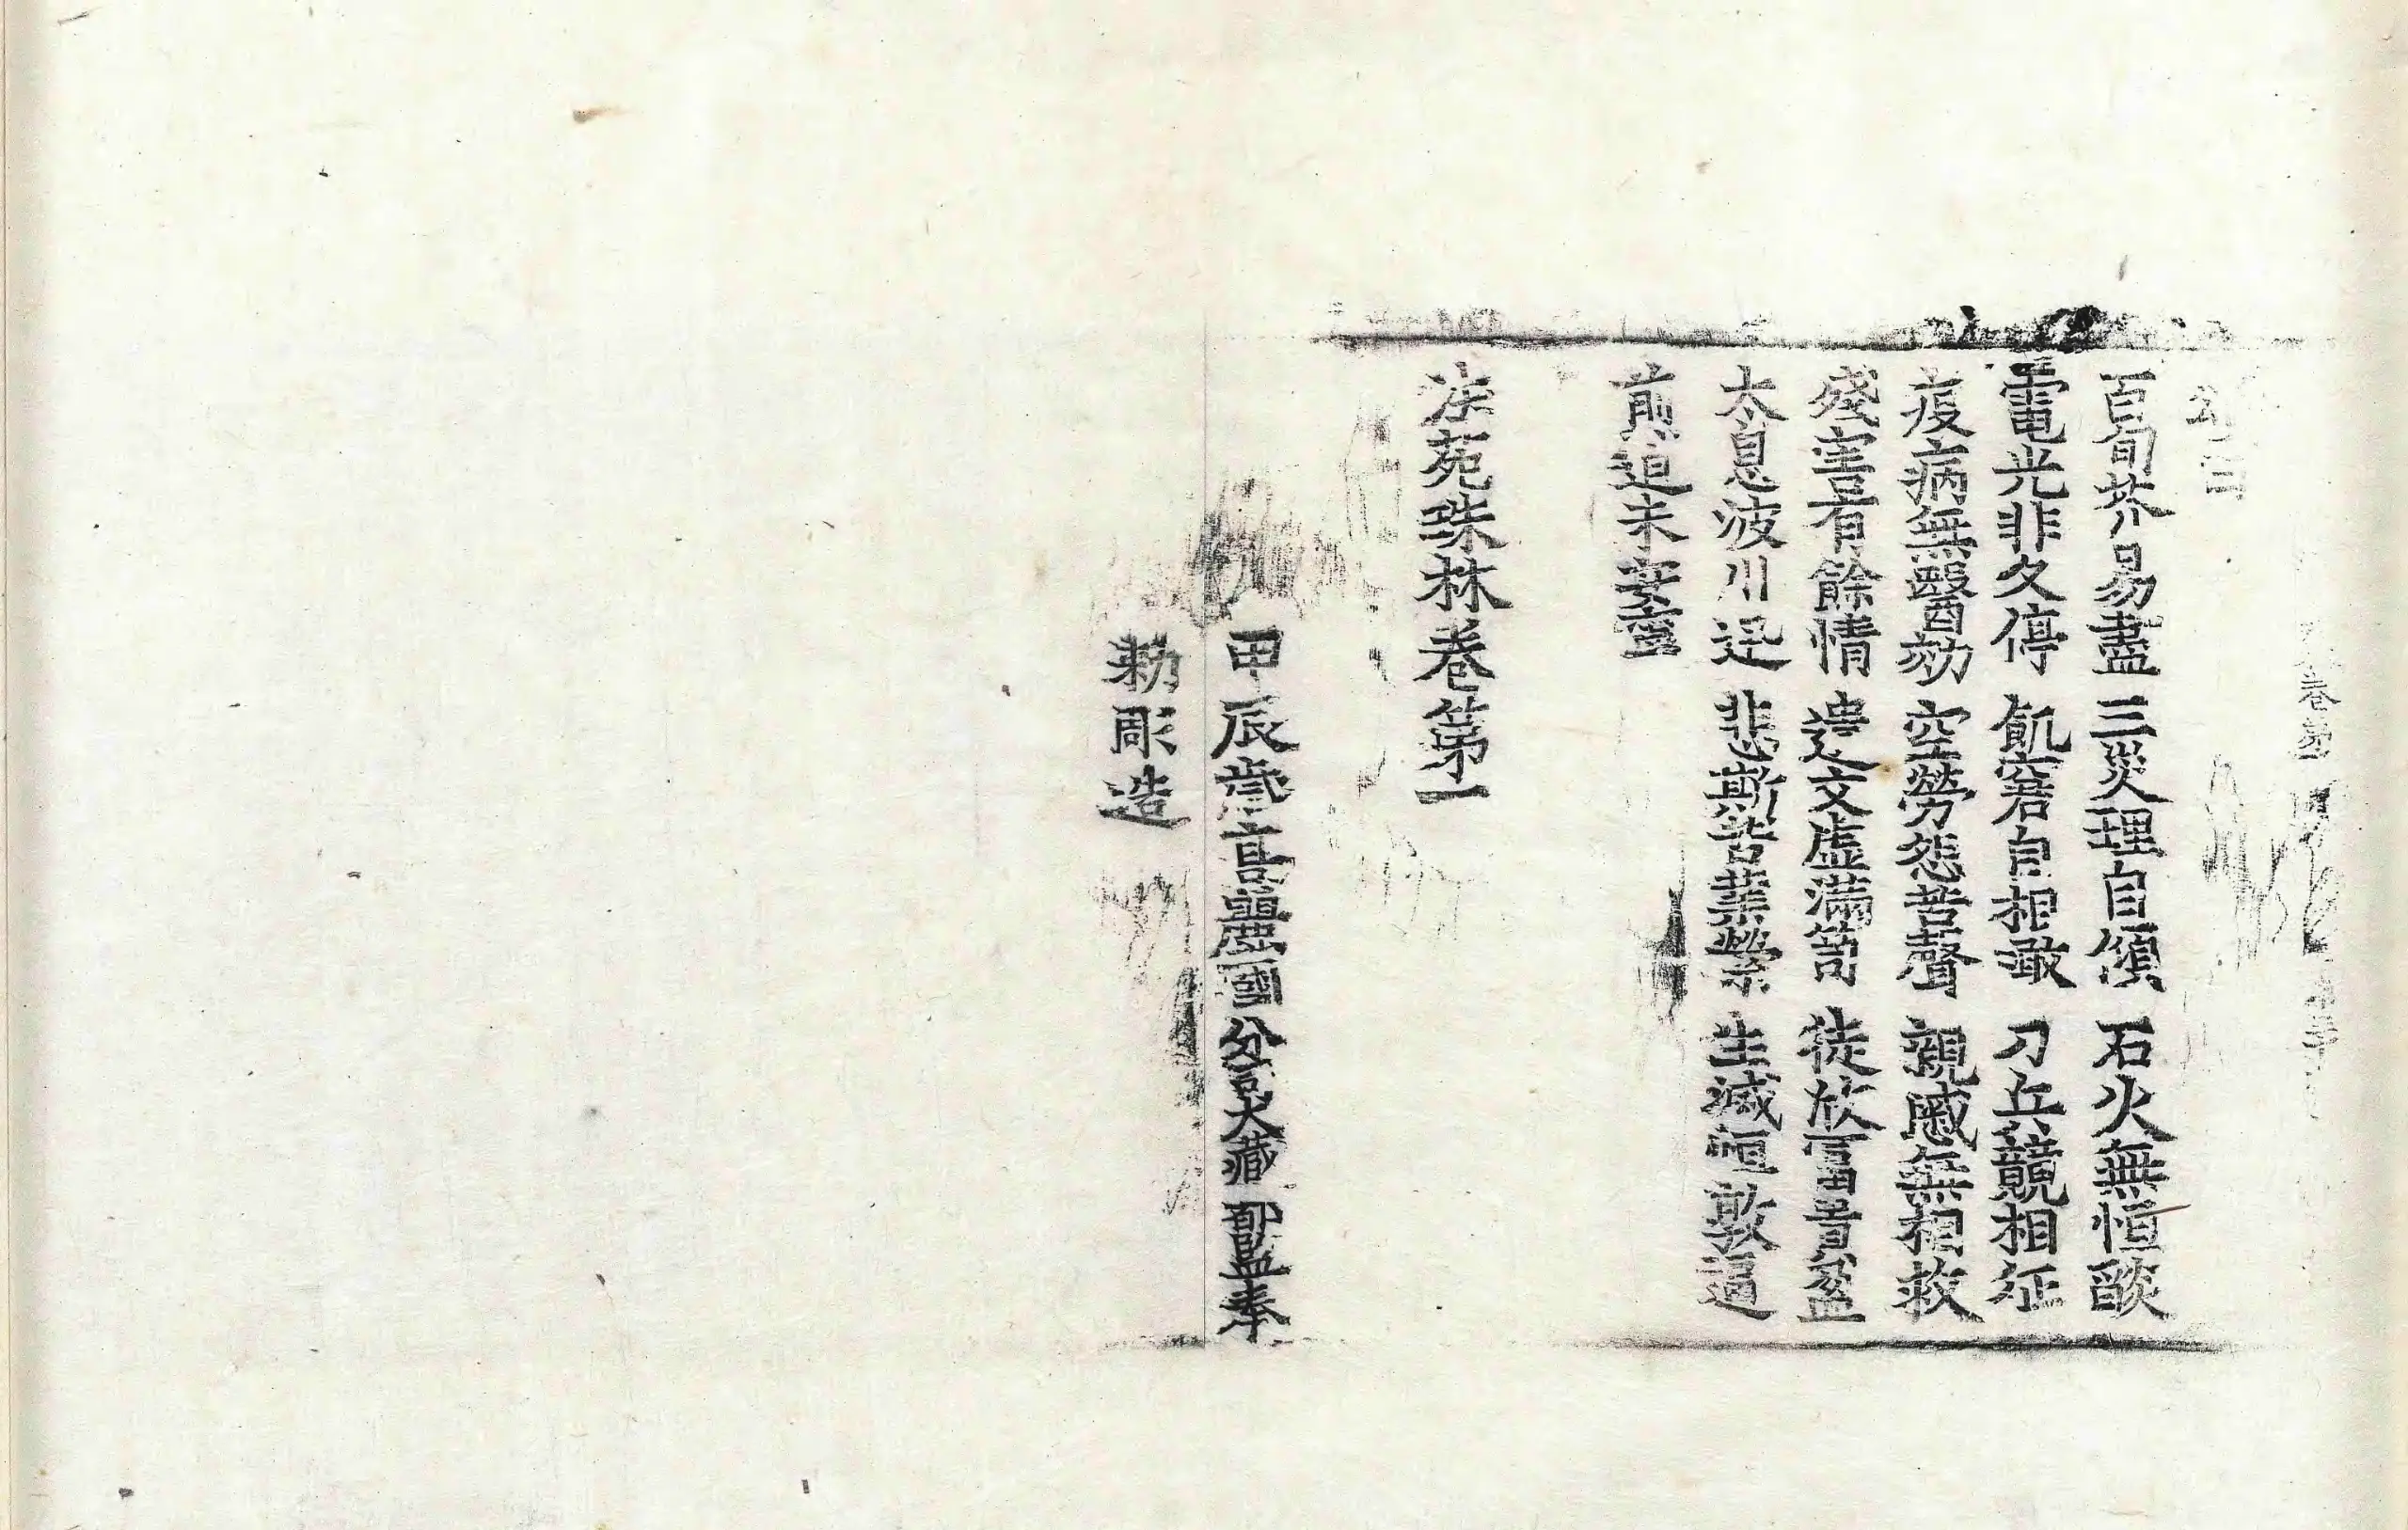 頌曰
百旬芥易盡三災理自傾石火無恒談
電光非久停飢窘自相噉刀兵競相征
疫病無醫効空勞怨苦聲親戚無相救
殘害有餘情遺文虛滿笥徒欣富貴盈
太息波川迅悲斯苦業縈生滅恒敦逼
煎迫未安寧
法苑珠林卷第一
甲辰歲高麗國分司大藏都監奉
勅彫造